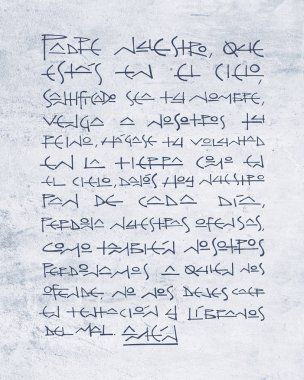 PADRE NUESTRO, QUE
ESTÁS EN EL CIELO,
SANTIFICADO SEA TU NOMBRE,
VENGA A NOSOTROS TU
REINO, HÁGASE TU VOLUNTAD
EN LA TIERRA COMO EN
EL CIELO, DANOS HOY NUESTRO
PAN DE CADA DÍA,
PERDONA NUESTRAS OFENSAS,
COMO TAMBIÉN NOSOTROS
PERDONAMOS A QUIEN NOS
OFENDE, NO NOS DEJES CAER
EN TENTACIÓN Y LÍBRANOS
DEL MAL. AMÉN